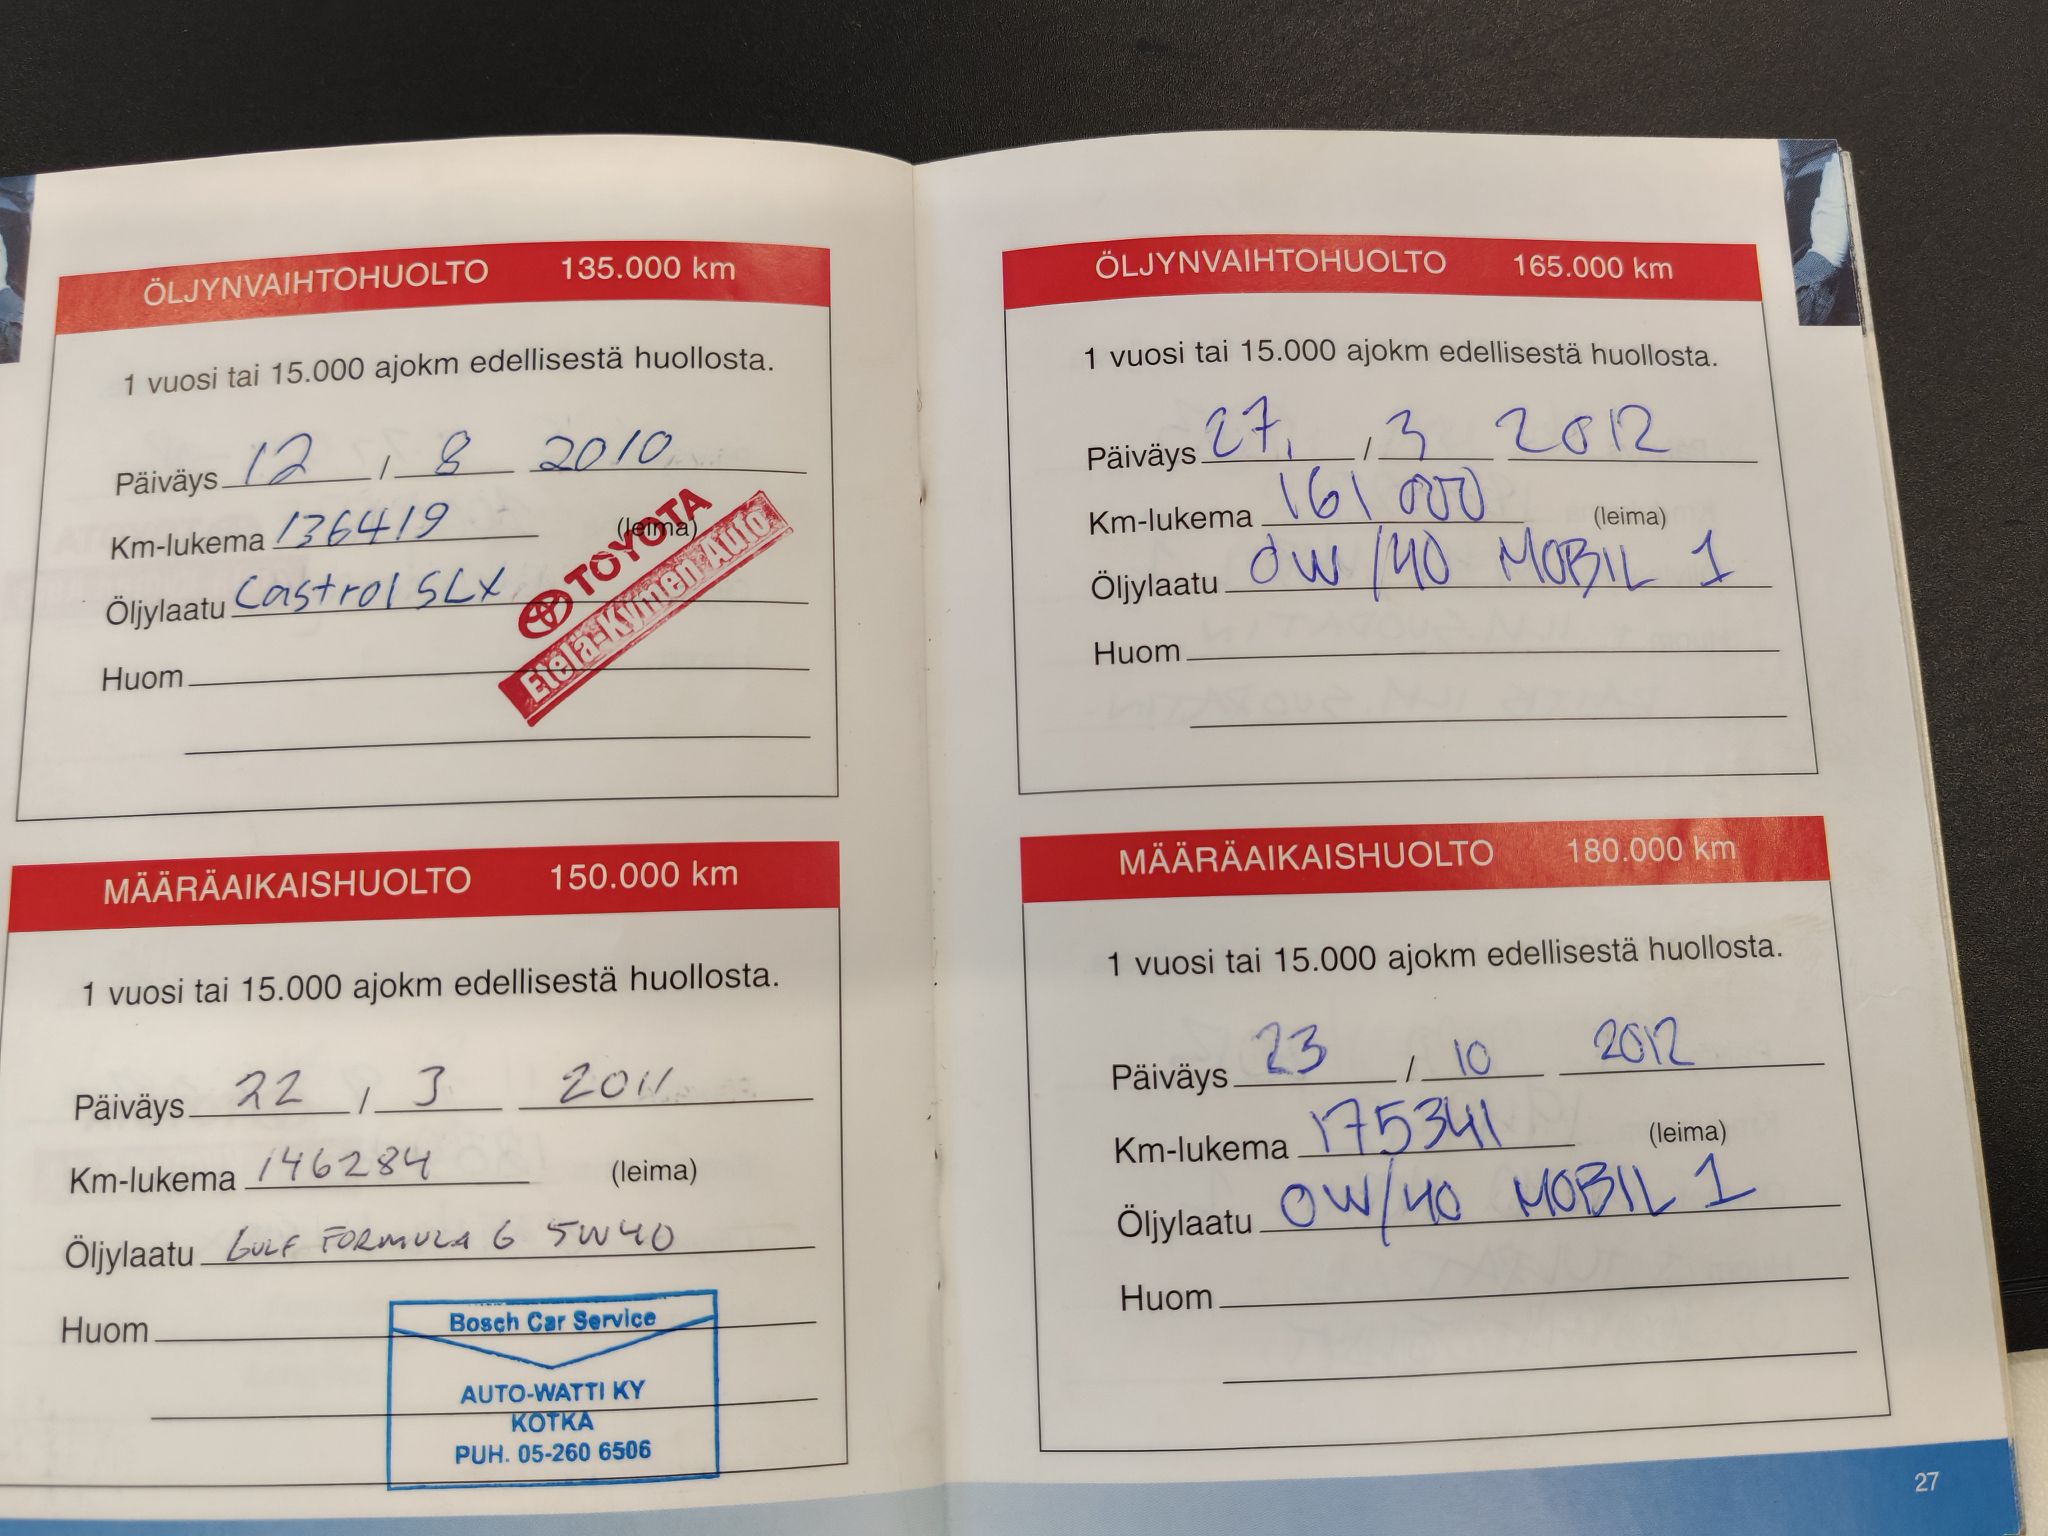 ÖLJYNVAIHTOHUOLTO 135.000 km
1 vuosi tai 15.000 ajokm edellisestä huollosta.
Päiväys 12 / 8 2010
Km-lukema 136419 (leima)
Öljylaatu Castrol SLX
Huom
TOYOTA
Etelä-Kymen Auto
MÄÄRÄAIKAISHUOLTO 150.000 km
1 vuosi tai 15.000 ajokm edellisestä huollosta.
Päiväys 22 / 3 2011
Km-lukema 146284 (leima)
Öljylaatu GULF FORMULA G 5W40
Huom
Bosch Car Service
AUTO-WATTI KY
KOTKA
PUH. 05-260 6506
ÖLJYNVAIHTOHUOLTO 165.000 km
1 vuosi tai 15.000 ajokm edellisestä huollosta.
Päiväys 27. / 3 2012
Km-lukema 161 000 (leima)
Öljylaatu 0W/40 MOBIL 1
Huom
MÄÄRÄAIKAISHUOLTO 180.000 km
1 vuosi tai 15.000 ajokm edellisestä huollosta.
Päiväys 23 / 10 2012
Km-lukema 175341 (leima)
Öljylaatu 0W/40 MOBIL 1
Huom
27